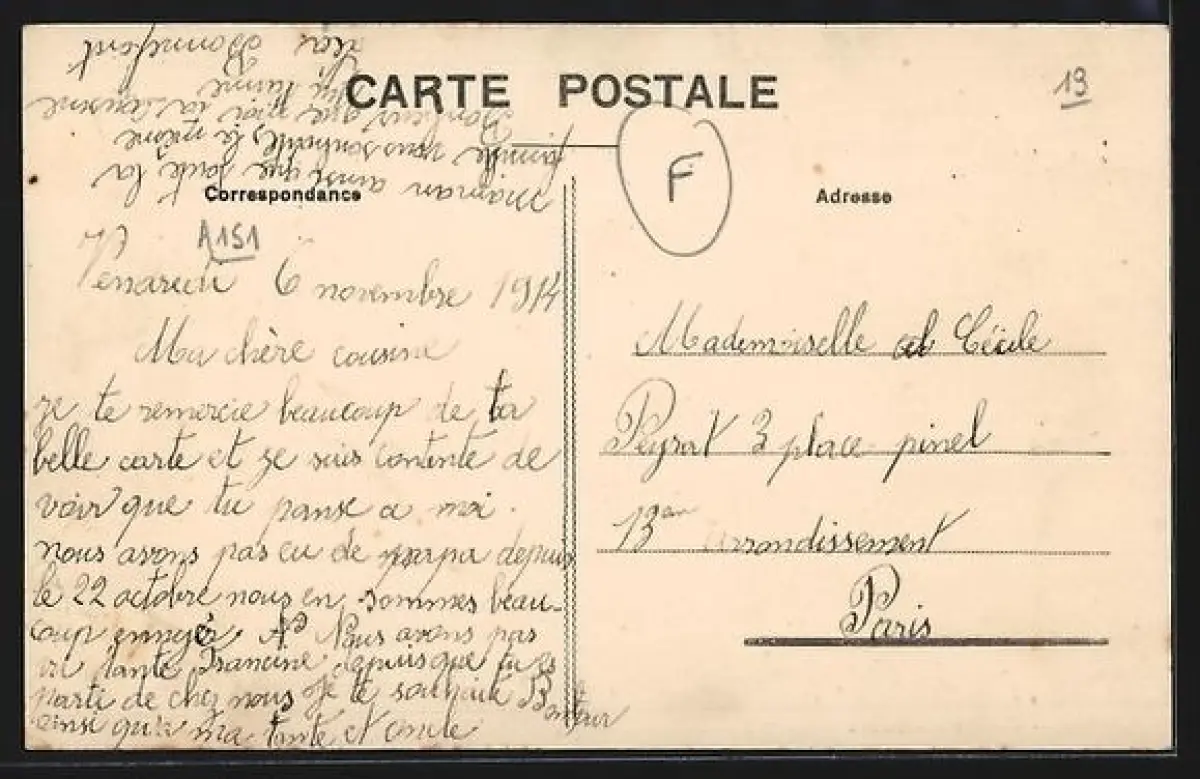 CARTE POSTALE
13
F
Correspondance
Adresse
A151
6 novembre 1914
Ma chère cousine
je te remercie beaucoup de ta
belle carte et je suis contente de
voir que tu panse a moi.
nous avons pas eu de papa depuis
le 22 octobre nous en sommes beau-
coup Nous avons pas
vu tante Francine depuis que tu es
parti de chez nous je te souhaite Bonjour
ainsi qu'a ma tante et oncle
maman ainsi que toute la
famille vous souhaites la même
Bonjour que moi ta cousine
qui t'aime
Bonnefont
Mademoiselle Cécile
Peyrat 3 place pinel
13em arrondissement
Paris